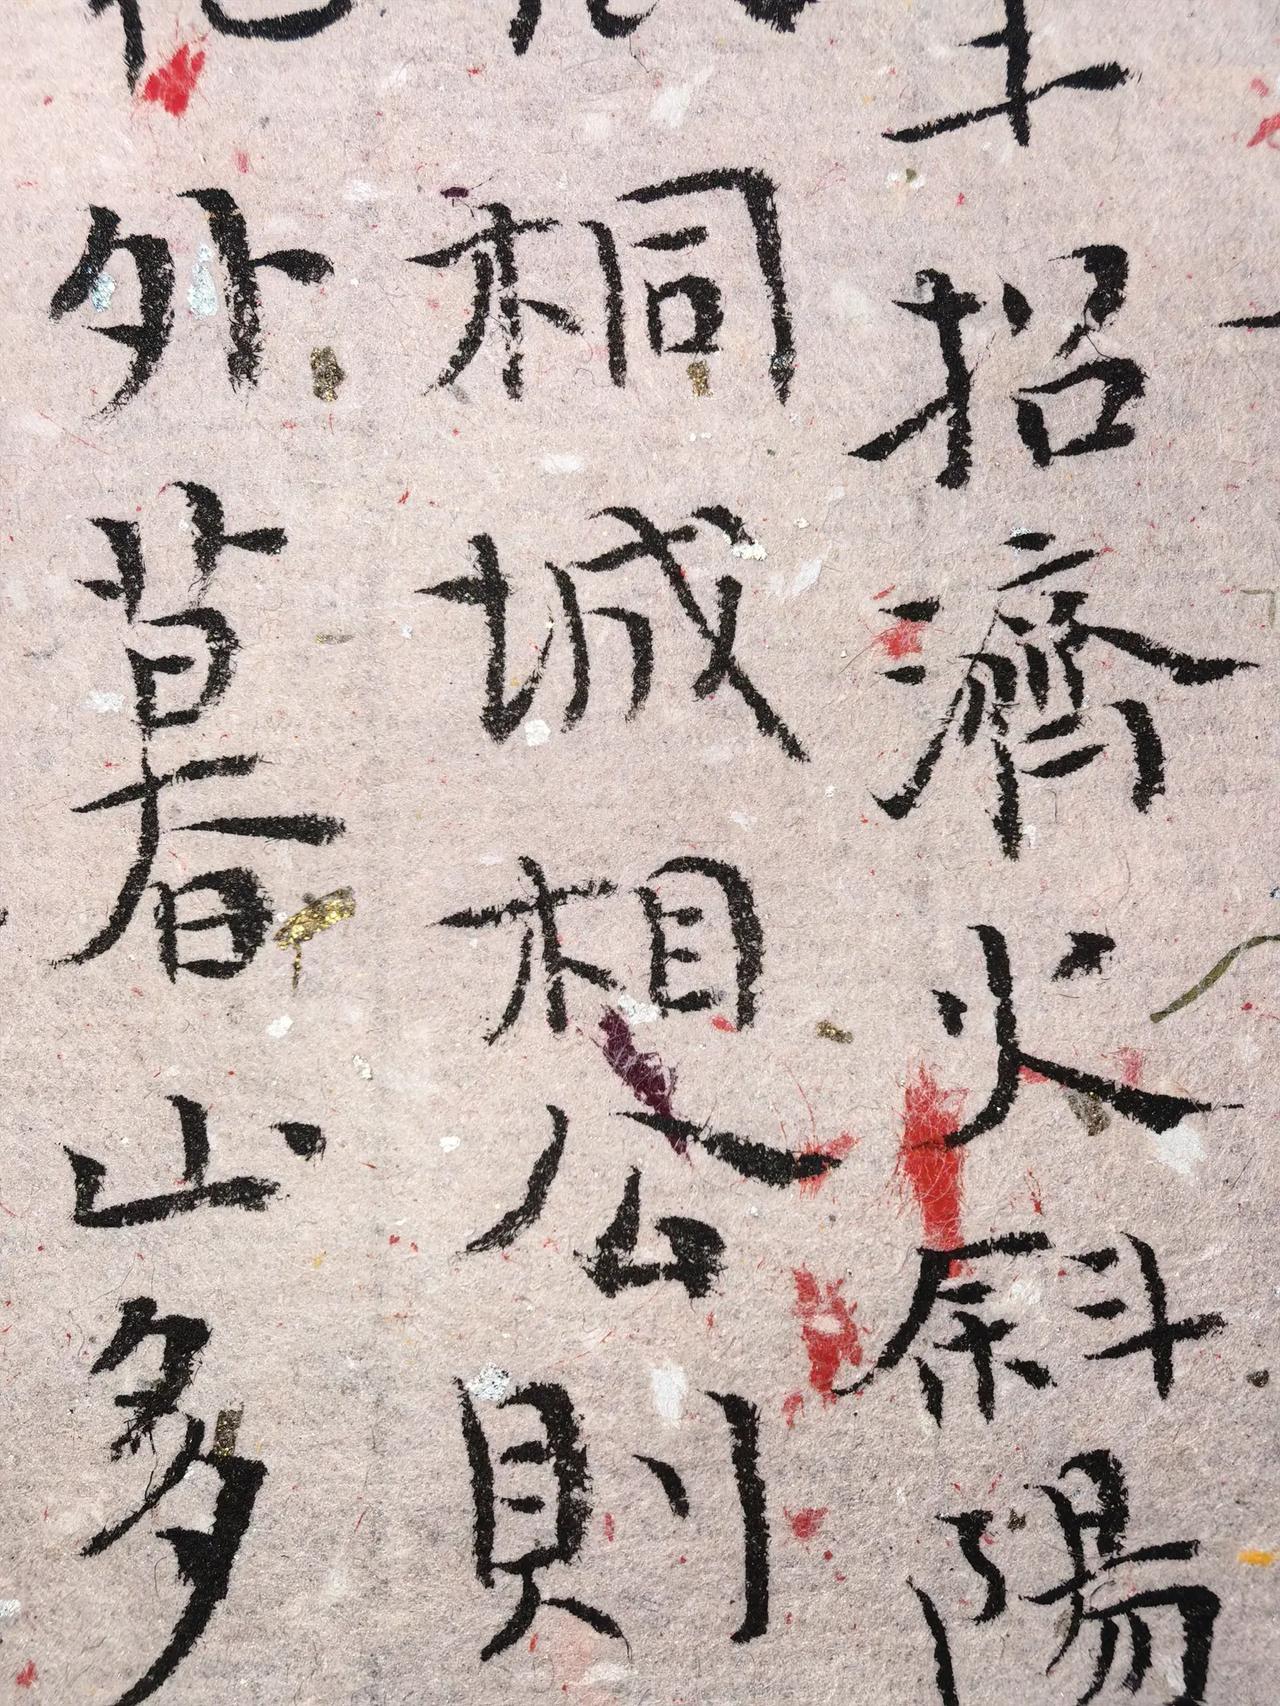 招濟火斜陽
桐城相公則
外暮山多